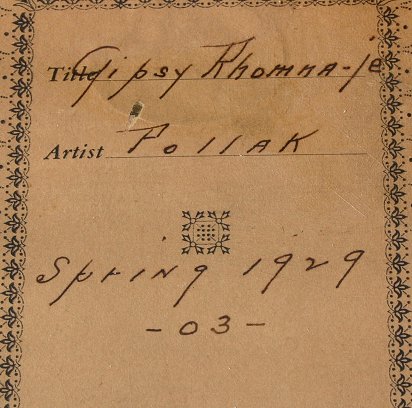 Title Gipsy Rhomna-je
Artist Pollak
Spring 1929
- 03 -